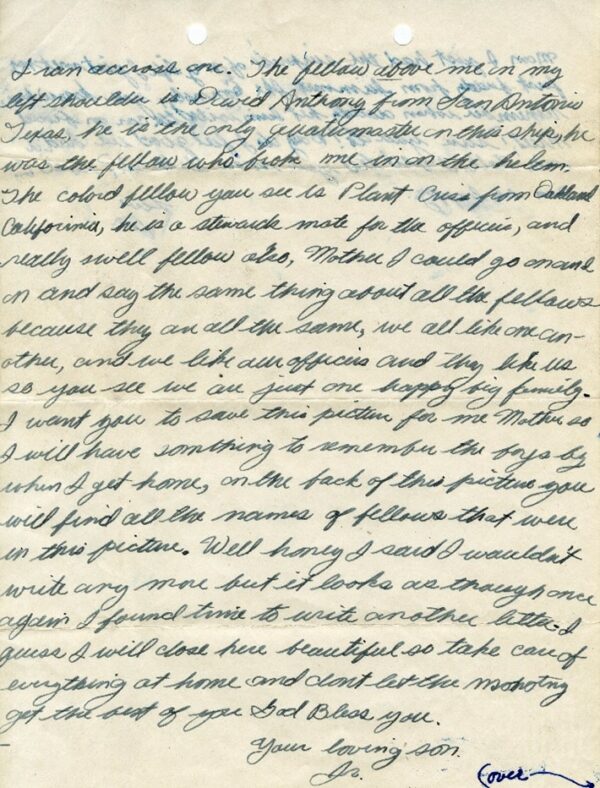 I ran accross one. The fellow above me in my
left shoulder is David Anthony from San Antonio
Texas, he is the only quatumaster on this ship, he
was the fellow who broke me in on the helem.
The colord fellow you see is Plant Cress from Oakland
California, he is a stewards mate for the officers, and
really swell fellow also, Mother I could go on and
on and say the same thing about all the fellows
because they are all the same, we all like one an-
other, and we like our officers and they like us
so you see we are just one happy big family.
I want you to save this picture for me Mother so
I will have somthing to remember the boys by
when I get home, on the back of this picture you
will find all the names of fellows that were
in this picture. Well honey I said I wouldn't
write any more but it looks as though once
again I found time to write another letter. I
guess I will close here beautiful so take care of
everything at home and dont let the
get the best of you God Bless you.
Your loving son.
Jr.
(over